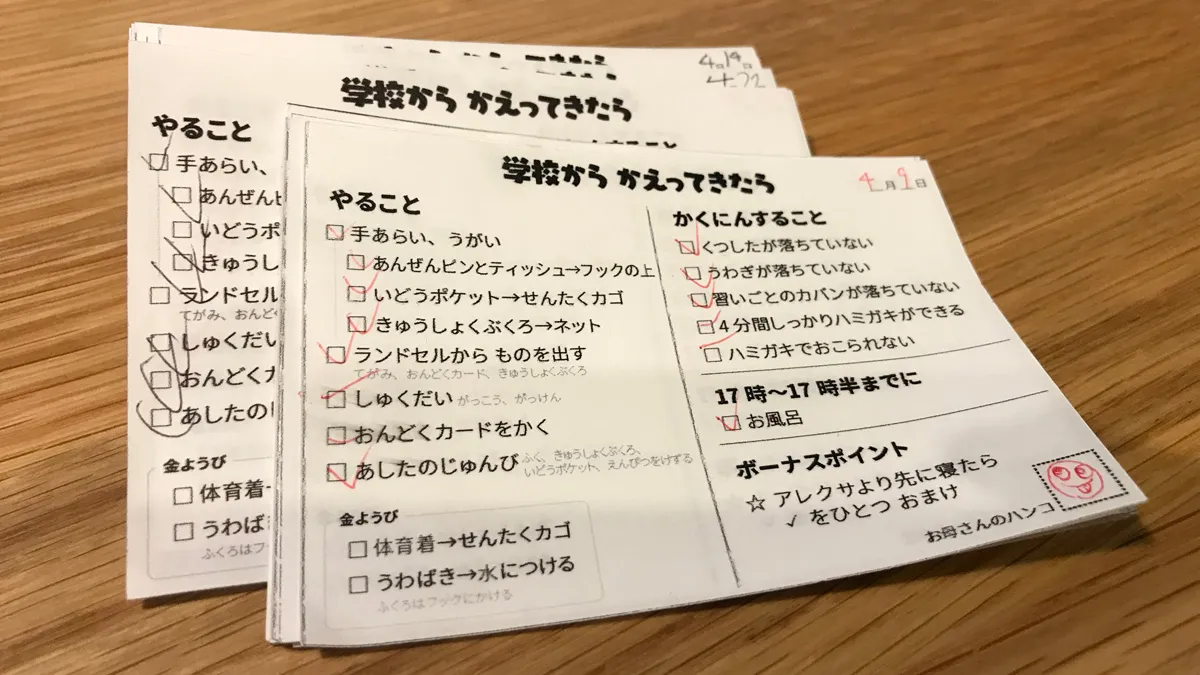 4月19日
4 22
学校から かえってきたら
やること
手あらい、
あんぜんピ
いどうポ
きゅうし
ランドセル
てがみ、おんどく
しゅくだい
おんどくカ
あしたの
金ようび
体育着
うわば
ふくろはフ
学校から かえってきたら
4月9日
やること
手あらい、うがい
あんぜんピンとティッシュ→フックの上
いどうポケット→せんたくカゴ
きゅうしょくぶくろ→ネット
ランドセルから ものを出す
てがみ、おんどくカード、きゅうしょくぶくろ
しゅくだい がっこう、がっけん
おんどくカードをかく
あしたのじゅんび ふく、きゅうしょくぶくろ、
いどうポケット、えんぴつをけずる
金ようび
体育着→せんたくカゴ
うわばき→水につける
ふくろはフックにかける
かくにんすること
くつしたが落ちていない
うわぎが落ちていない
習いごとのカバンが落ちていない
4分間しっかりハミガキができる
ハミガキでおこられない
17時〜17時半までに
お風呂
ボーナスポイント
☆ アレクサより先に寝たら
✓ をひとつ おまけ
お母さんのハンコ